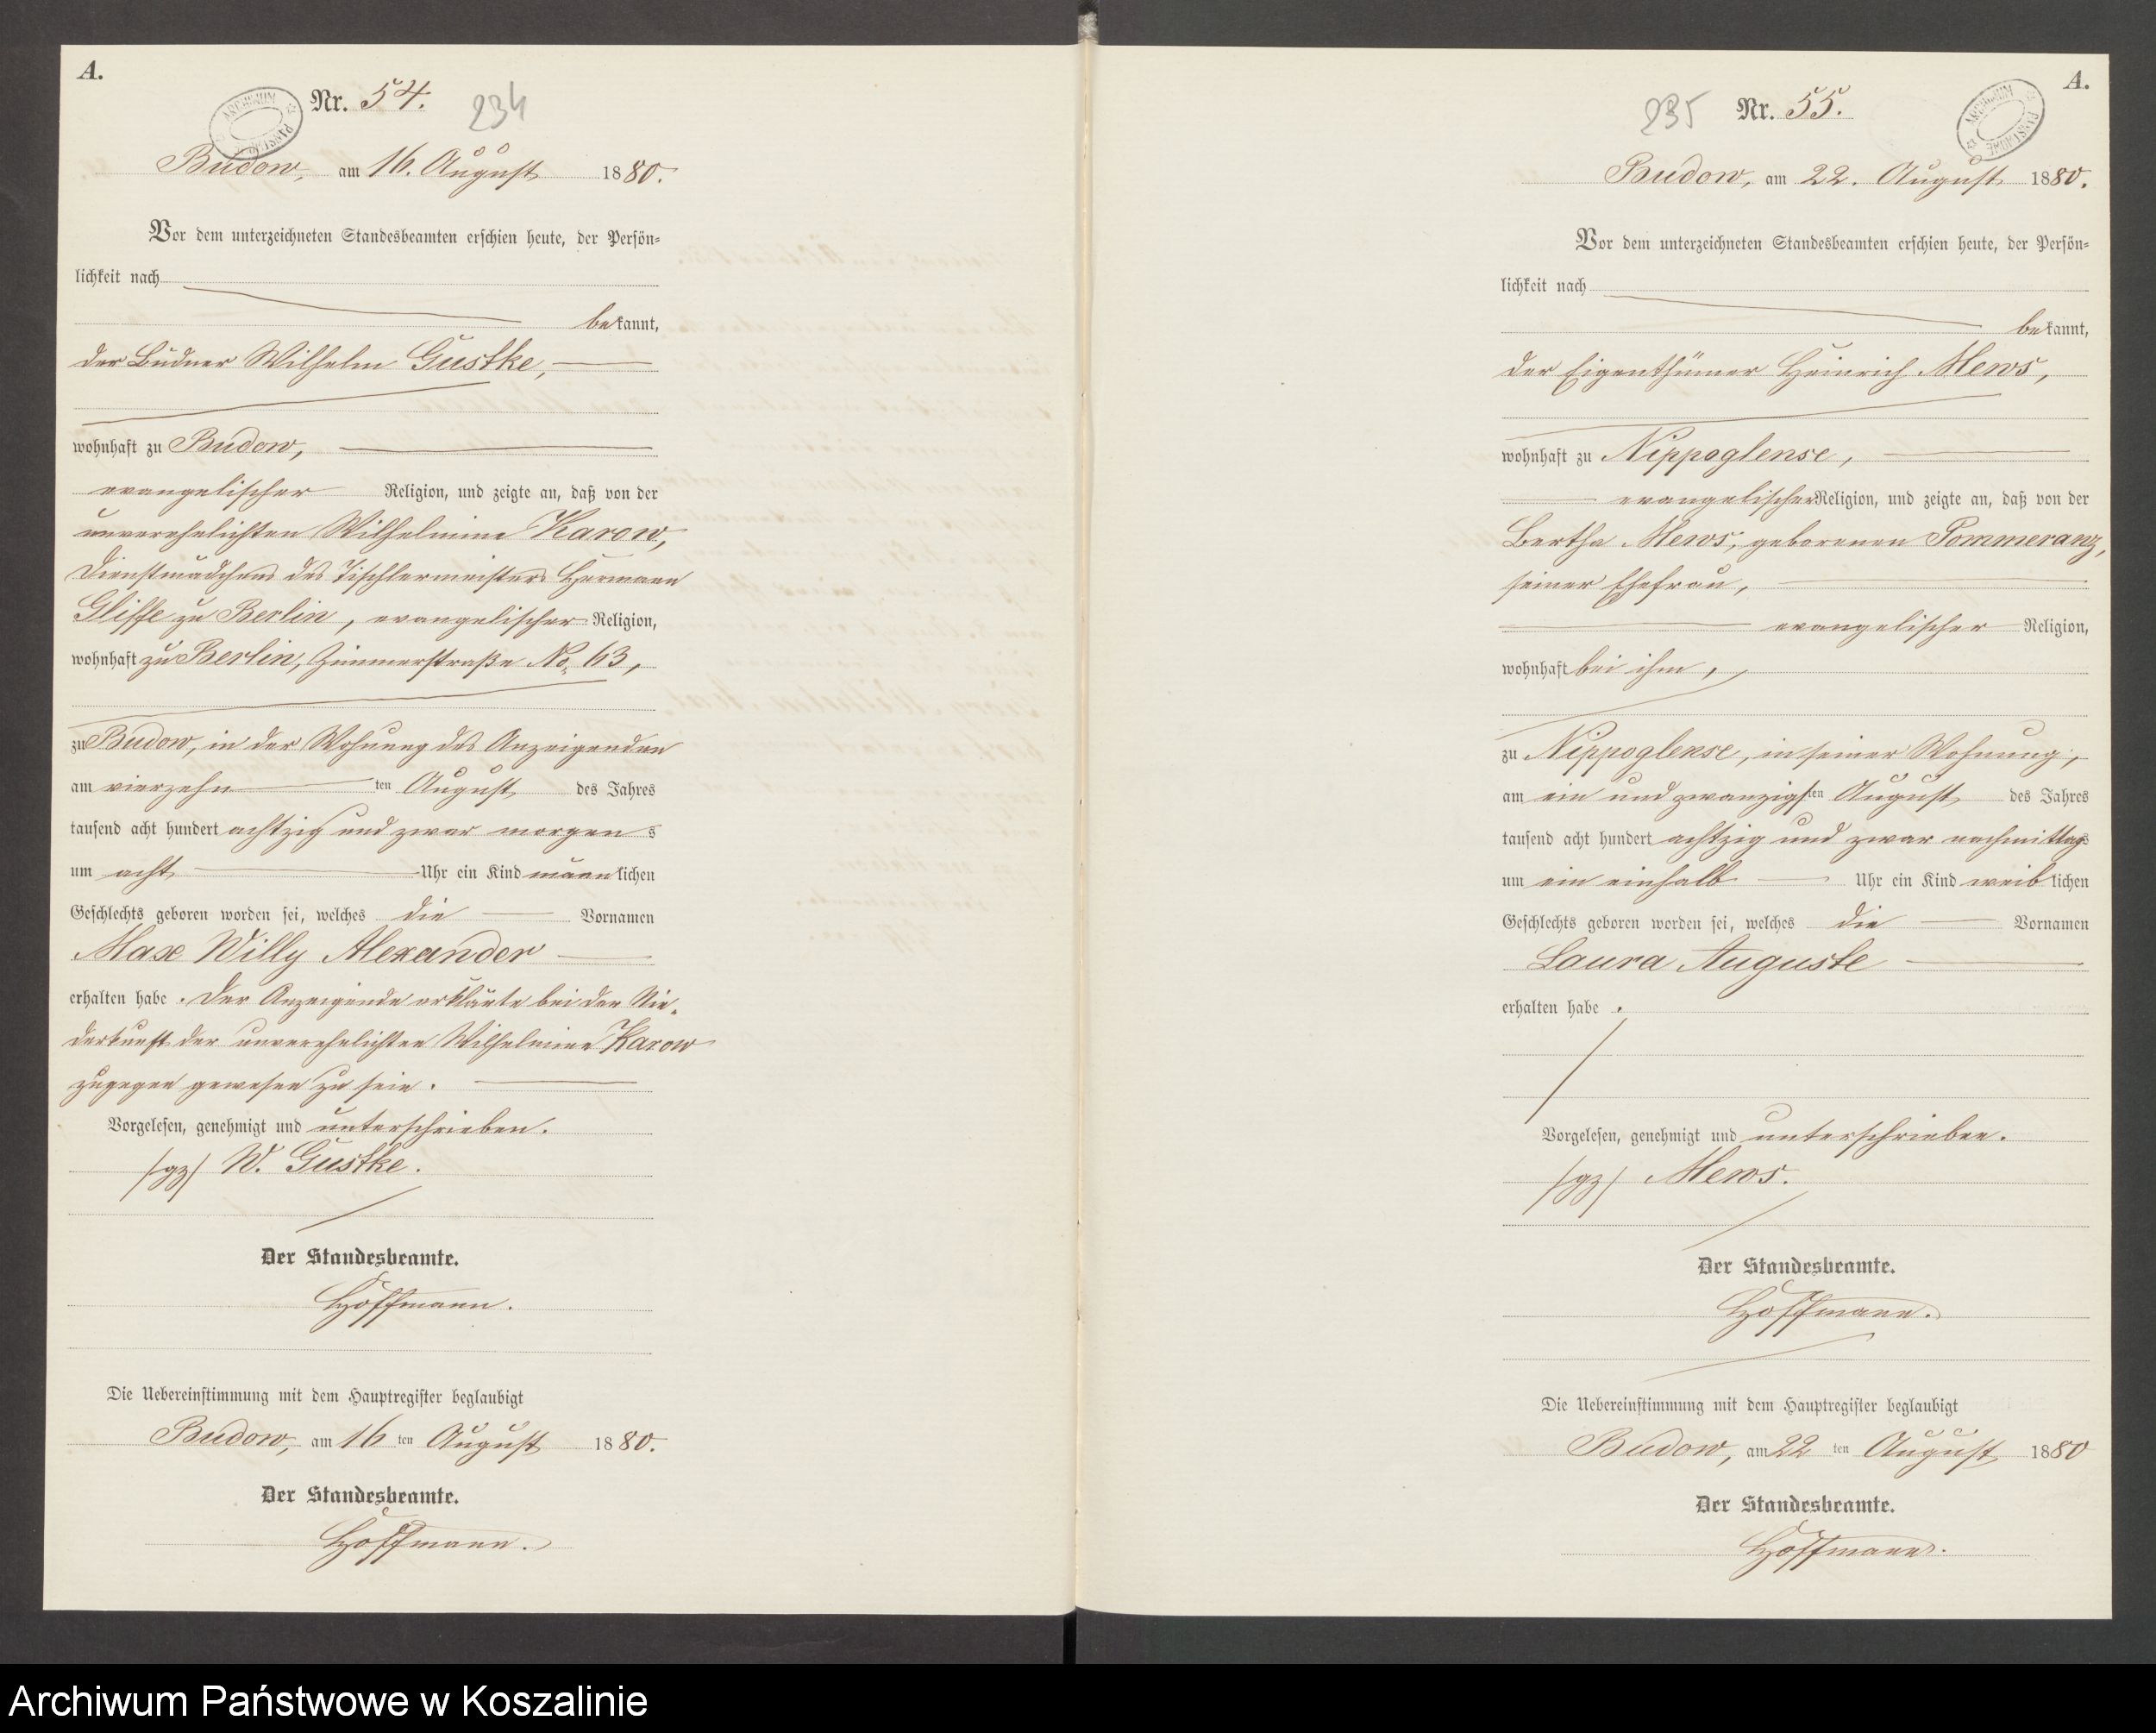 A.
Nr. 54.
234
ARCHIWUM PAŃSTWOWE
Budow, am 16. August 1880.
Vor dem unterzeichneten Standesbeamten erschien heute, der Persön=
lichkeit nach
bekannt,
der Büdner Wilhelm Gustke,
wohnhaft zu Budow,
evangelischer Religion, und zeigte an, daß von der
unverehelichten Wilhelmine Karow,
Dienstmädchens des Tischlermeisters Hermann
zu Berlin, evangelischer Religion,
wohnhaft zu Berlin, Zimmerstraße No. 63,
zu Budow, in der Wohnung des Anzeigenden
am vierzehn ten August des Jahres
tausend acht hundert achtzig und zwar morgens
um acht Uhr ein Kind männlichen
Geschlechts geboren worden sei, welches die Vornamen
Max Willy Alexander
erhalten habe. Der Anzeigende erklärte bei der Nie=
derkunft der unverehelichten Wilhelmine Karow
zugegen gewesen zu sein.
Vorgelesen, genehmigt und unterschrieben.
/gz/ W. Gustke.
Der Standesbeamte.
Hoffmann.
Die Uebereinstimmung mit dem Hauptregister beglaubigt
Budow, am 16 ten August 1880.
Der Standesbeamte.
Hoffmann.
A.
235
Nr. 55.
ARCHIWUM PAŃSTWOWE
Budow, am 22. August 1880.
Vor dem unterzeichneten Standesbeamten erschien heute, der Persön=
lichkeit nach
bekannt,
der Eigenthümer Heinrich Mews,
wohnhaft zu Nippoglense,
evangelischer Religion, und zeigte an, daß von der
Bertha Mews, geborenen Pommeranz,
seiner Ehefrau,
evangelischer Religion,
wohnhaft bei ihm,
zu Nippoglense, in seiner Wohnung,
am ein und zwanzigsten August des Jahres
tausend acht hundert achtzig und zwar nachmittags
um ein einhalb Uhr ein Kind weiblichen
Geschlechts geboren worden sei, welches die Vornamen
Laura Auguste
erhalten habe.
Vorgelesen, genehmigt und unterschrieben.
/gz/ Mews.
Der Standesbeamte.
Hoffmann.
Die Uebereinstimmung mit dem Hauptregister beglaubigt
Budow, am 22 ten August 1880
Der Standesbeamte.
Hoffmann.
Archiwum Państwowe w Koszalinie